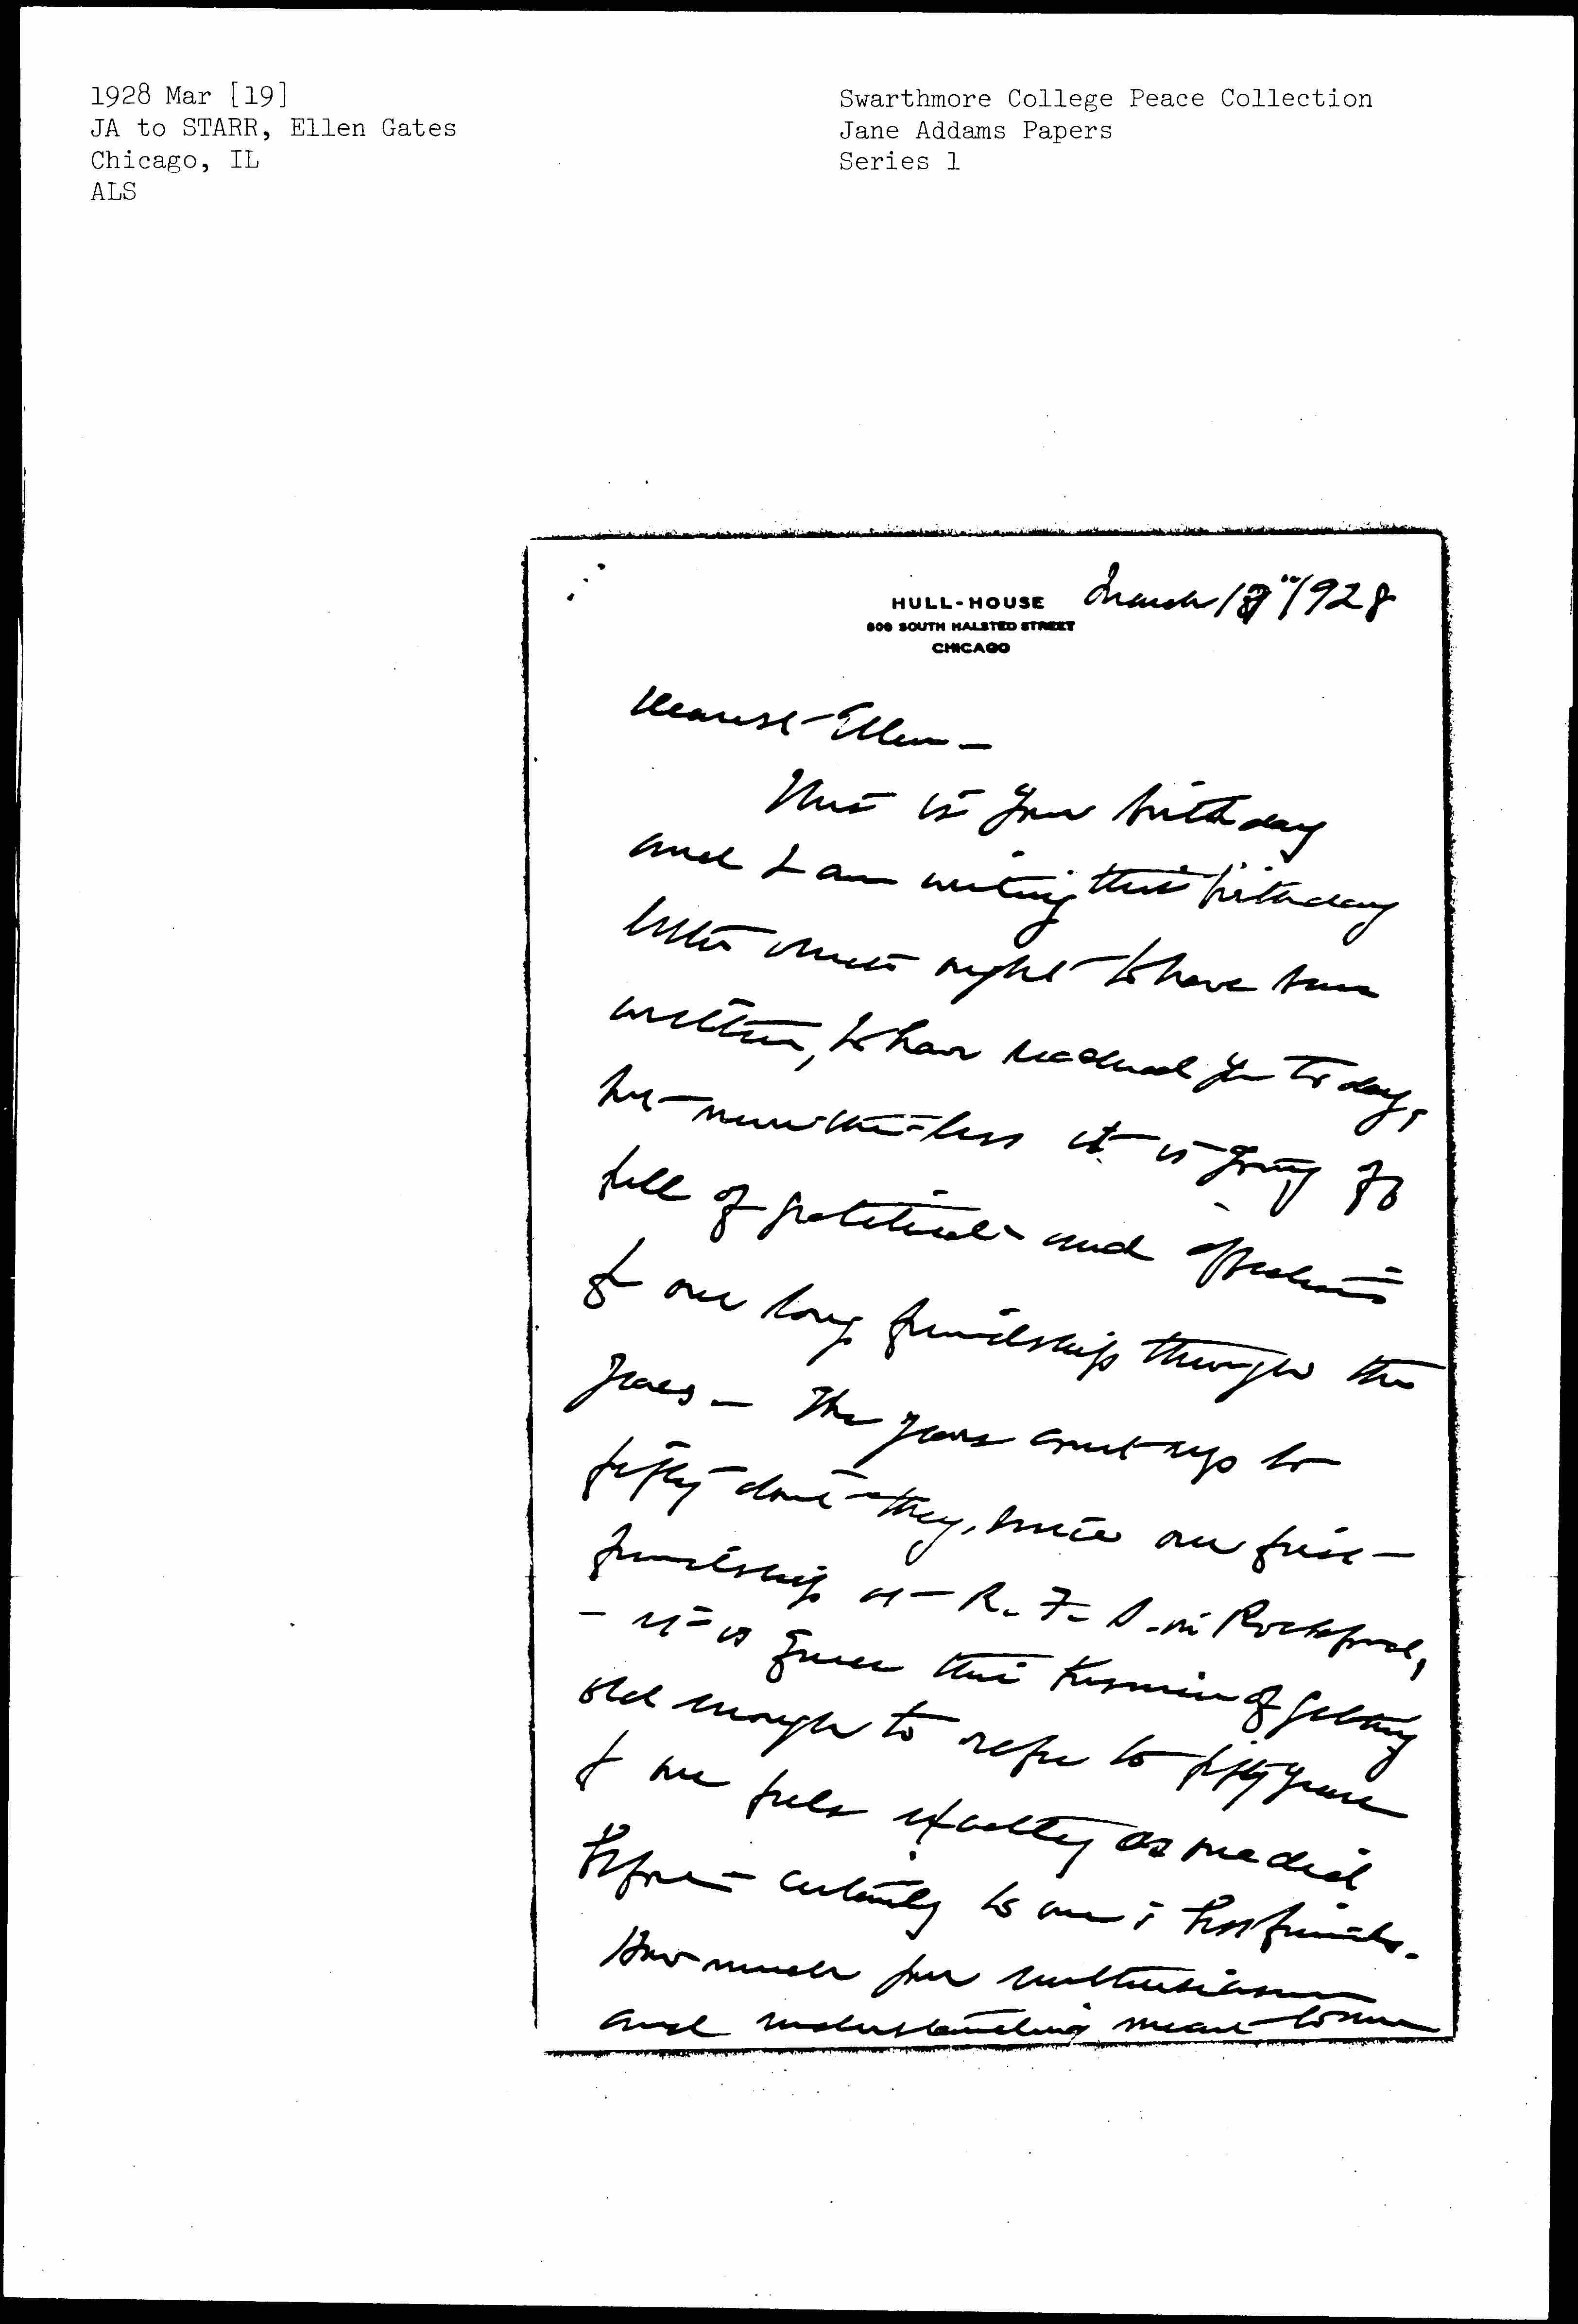 1928 Mar [19]
JA to STARR, Ellen Gates
Chicago, IL
ALS
Swarthmore College Peace Collection
Jane Addams Papers
Series 1
HULL-HOUSE
800 SOUTH HALSTED STREET
CHICAGO
March 1928
Dearest Ellen —
This is your birthday
and I am writing this birthday
letter which ought to have been
written, to have reached you to day,
but never-the-less it is going off
full of gratitude and affection
& our long friendship through the
years — The years count up to
fifty don't they, since our first
friendship at R. F. S. in Rockford,
— it is queer this business of getting
old enough to refer to fifty years
& one feels exactly as one did
before — certainly to one's best friends.
How much your enthusiasm
and understanding meant to me